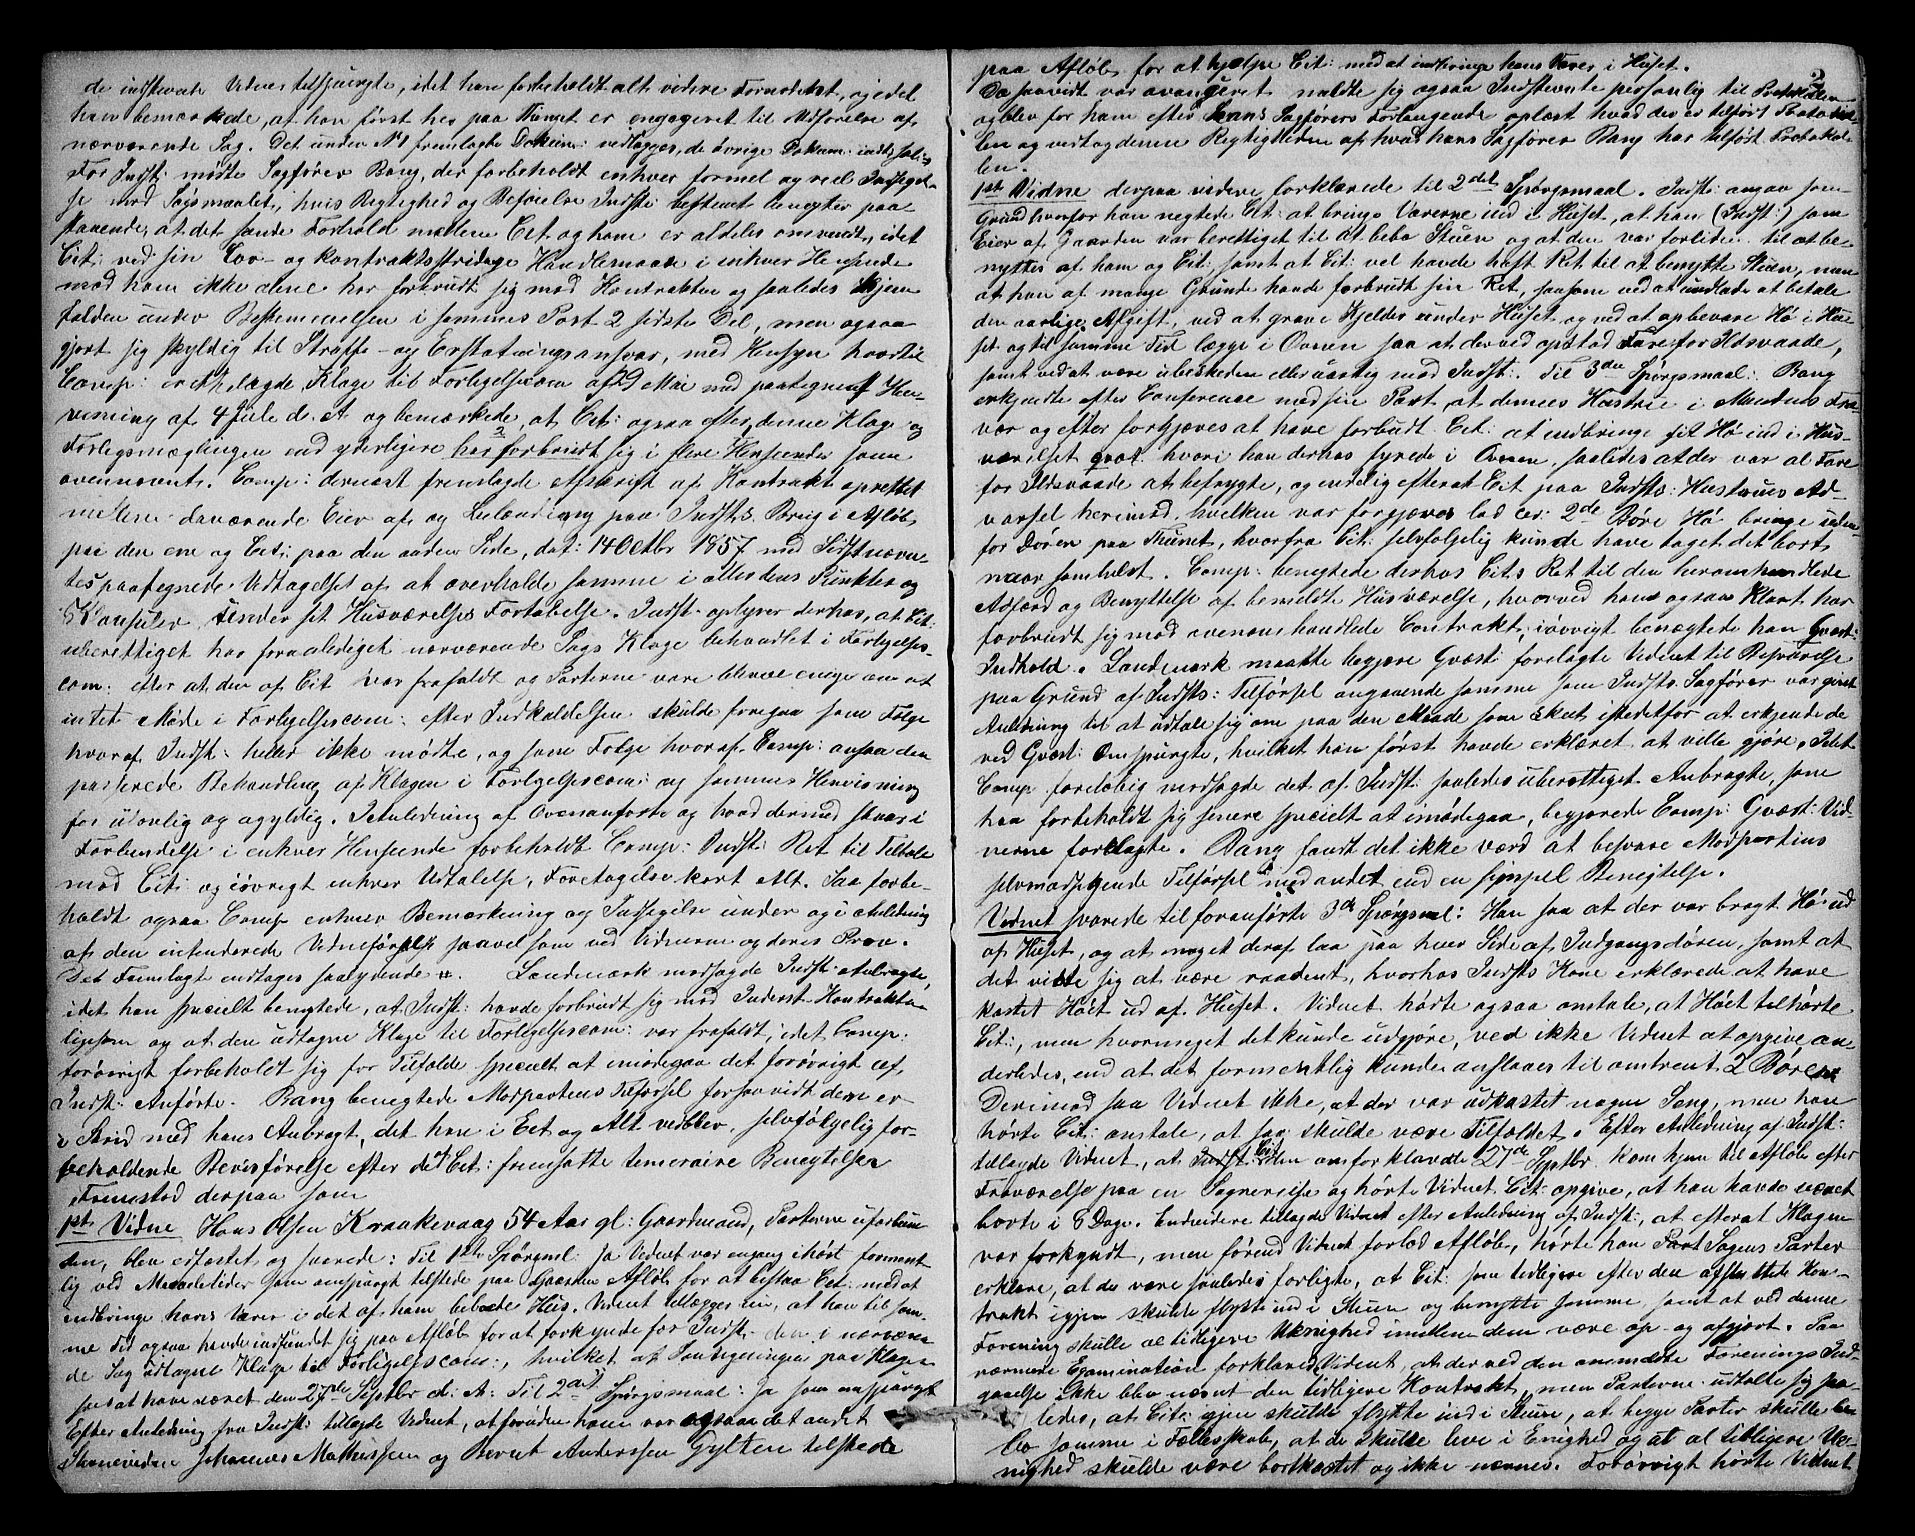 de indstevnte Vidner tilspurgte, idet han forbeholdt alt videre Fornødent, og idet
han bemærkede, at han først her paa Thinget er engageret til Udførelse af
nærværende Sag. Det under N1 fremlagte Dokum: vedlægges, de øvrige Dokum: indts: sales
For Indst: mødte Sagfører Bang, der forbeholdt enhver formel og reel Indsigel-
se mod Søgsmaalet, hvis Rigtighed og Beføielse Indst: bestemt benegter paa-
staaende, at det sande Forhold mellem Cit og ham er aldeles omvendt, idet
Cit: ved sin Lov- og kontraktsstridige Handlemaade i enhver Henseende
mod ham ikke alene har forbrudt sig mod Kontrakten og saaledes hjem
falden under Bestemmelsen i sammes Post 2 sidste Del, men ogsaa
gjort sig skyldig til Straffe- og Erstatningsansvar, med Hensyn hvortil
Comp: fremlægde Klage til Forligelsescom af 29 Mai med paategnet Hen-
visning af 4 Juli d. A. og bemærkede, at Cit: ogsaa efter denne Klage og
Forligsmæglingen end yderligere har forbrudt sig i flere Henseender som
ovennævnt. Comp: dernæst fremlagde Afskrift af Kontrakt oprettet
mellem daværende Eier af og Leilænding paa Indst:s Brug i Afløb
paa den ene og Cit: paa den anden Side, dat: 14 Octbr 1857 med Sidstnævn-
tes paategnede Vedtagelse af at overholde samme i alle dens Punkter og
Klausuler under sit Husværelses Fortabelse. Indst: oplyser derhos, at Cit:
uberettiget har foranlediget nærværende Sags Klage behandlet i Forligelses-
com: efter at den af Cit var frafaldt og Parterne vare blevne enige om at
intet Møde i Forligelsescom: efter Indkaldelsen skulde foregaa som Følge
hvoraf Indst: heller ikke mødte, og som Følge hvoraf Comp: ansaa den
passerede Behandling af Klagen i Forligelsescom: og sammes Henvisning
for ulovlig og ugyldig. I Anledning af Ovenanførte og hvad dermed staar i
Forbindelse i enhver Henseende forbeholdt Comp: Indst: Ret til Tiltale
mod Cit: og iøvrigt enhver Udtalelse, Foretagelse kort Alt. Saa forbe-
holdt ogsaa Comp enhver Bemærkning og Indsigelse under og i Anledning
af den intenderede Vidneførsel saavel som ved Vidnerne og deres Prov.
Det Fremlagt indtages saalydende  Landmark modsagde Indst: Anbragte,
idet han specielt benegtede, at Indst: havde forbrudt sig mod Inderst Kontrakten
ligesom og at den udtagne Klage til Forligelsescom: var frafaldt, idet Comp:
forøvrigt forbeholdt sig for Tilfælde specielt at imødegaa det forøvrigt af
Indst: Anførte. Bang benegtede Modpartens Tilførsel forsaavidt den er
i Strid med hans Anbragt, det han i Eet og Alt vedblev, selvfølgelig for-
beholdende Bevisførelse efter det af Cit: fremsatte temeraire Benegtelser
Fremstod derpaa som
1ste Vidne Hans Olsen Kraakevaag 54 Aar gl: Gaardmand, Parterne uforbun-
den, blev edfæstet og svarede: Til 1ste Spørgml: Ja Vidnet var engang ihøst forment-
lig ved Mikaelstider som omspurgt tilstede paa Gaarden Afløb for at bistaa Cit: med at
indbringe hans Varer i det af ham beboede Hus. Vidnet tillægger nu, at han til sam-
me Tid ogsaa havde indfundet sig paa Afløb for at forkynde for Indst: den i nærværen-
de Sag udtagne Klage til Forligelsescom:, hvilket af Paategningen paa Klagen
sees at have været den 27de Septbr d: A: Til 2det Spørgsmaal: Ja som omspurgt
Efter Anledning fra Indst: tillagde Vidnet, at foruden ham var ogsaa det andet
Stevnevidne Johannes Mathissen og Bernt Anderssen Gylten tilstede
2
paa Afløb for at hjælpe Cit: med at indbringe hans Varer i Huset.
Da saavidt var avanceret meldte sig ogsaa Indstevnte personlig til Protokollen
og blev for ham efter hans Sagførers Forlangende oplæst hvad der er tilført Protokol-
len og vedtog denne Rigtigheden af hvad hans Sagfører Bang har tilført Protokol-
len.
1ste Vidne derpaa videre forklarede til 2det Spørgsmaal. Indst: angav som
Grund hvorfor han negtede Cit: at bringe Varerne ind i Huset, at han (Indst:) som
Eier af Gaarden var berettiget til at bebo Stuen og at den var forliden til at be-
nyttes af ham og Cit:, samt at Cit: vel havde havt Ret til at benytte Stuen, men
at han af mange Grunde havde forbrudt sin Ret, saasom ved at undlade at betale
den aarlige Afgift, ved at grave Kjelder under Huset og ved at opbevare Hø i Hu-
set og til samme Tid lægge i Ovnen saa at derved opstod Fare for Ildsvaade,
samt ved at være ubeskeden eller uartig mod Indst:. Til 3die Spørgsmaal: Bang
erkjendte efter Conference med sin Part at dennes Hustrue i Mandens Fra-
vær og efter forgjæves at have forbudt Cit: at indbringe sit Hø ind i Hus-
værelset qvæst. hvori han derhos fyrede i Ovnen, saaledes at der var al Fare
for Ildsvaade at befrygte, og endelig efterat Cit paa Indst:s Hustrues Ad-
varsel herimod, hvilken var forgjæves lod ca: 2de Børe Hø bringe uden-
for Døren paa Thunet, hvorfra Cit: selvfølgelig kunde have taget det bort
naar somhelst. Comp: benegtede derhos Cits Ret til den heromhandlede
Adfærd og Benyttelse af bemeldte Husværelse, hvorved han ogsaa klart har
forbrudt sig mod ovenomhandlede Contrakt, iøvrigt benegtede han Qvæst:
Indhold. Landmark maatte begjære Qvæst: forelagte Vidnet til Besvarelse
paa Grund af Indst:s Tilførsel angaaende samme som Indsts Sagfører var givet
Anledning til at udtale sig om paa den Maade som skeet istedetfor at erkjende de
ved Qvæst: Omspurgte, hvilket han først havde erklæret at ville gjøre. Idet
Comp foreløbig modsagde det af Indst: saaledes uberettiget Anbragte, som
han forbeholdt sig senere specielt at imødegaa, begjærede Comp: Qvæst: Vid-
nerne forelagte. Bang fandt det ikke værd at besvare Modpartens
selvmodsigende Tilførsel med andet end en simpel Benegtelse.
Vidnet svarede til foranførte 3die Spørgsml: Han saa at der var bragt Hø ud
af Huset, og at noget deraf laa paa hver Side af Indgangsdøren, samt at
det viste sig at være raadent, hvorhos Indsts Kone erklærede at have
kastet Høet ud af Huset. Vidnet hørte ogsaa omtale, at Høet tilhørte
Cit:, men hvormeget det kunde udgjøre, ved ikke Vidnet at opgive an-
derledes, end at det formentlig kunde anslaaes til omtrent 2 Bører
Derimod saa Vidnet ikke, at der var udkastet nogen Seng, men han
hørte Cit: omtale, at saa skulde være Tilfældet. Efter Anledning af Indst:
tillagde Vidnet, at Cit: den omforklarede 27de Septbr kom hjem til Afløb efter
Fraværelse paa en Sognereise og hørte Vidnet Cit: opgive, at han havde været
borte i 8 Dage. Endvidere tillagde Vidnet efter Anledning af Indst:, at efterat Klagen
var forkyndt, men førend Vidnet forlod Afløb, hørte han Sagens Parter
erklære, at de vare saaledes forligte, at Cit: som tidligere efter den afsluttede Kon-
trakt igjen skulde flytte ind i Stuen og benytte samme, samt at ved denne
Forening skulle al tidligere Uenighed imellem dem være op- og afgjort. Paa
nærmere Examination forklarede Vidnet, at der ved den anmeldte Forenings Ind-
gaaelse ikke blev nævnt den tidligere Kontrakt, men Parterne udtalte sig saa-
ledes, at Cit: igjen skulde flytte ind i Stuen, at begge Parter skulle be-
bo samme i Fællesskab, at de skulde leve i Enighed og at al tidligere Ue-
nighed skulde være bortkastet og ikke nævnes. Forøvrigt hørte Vidnet